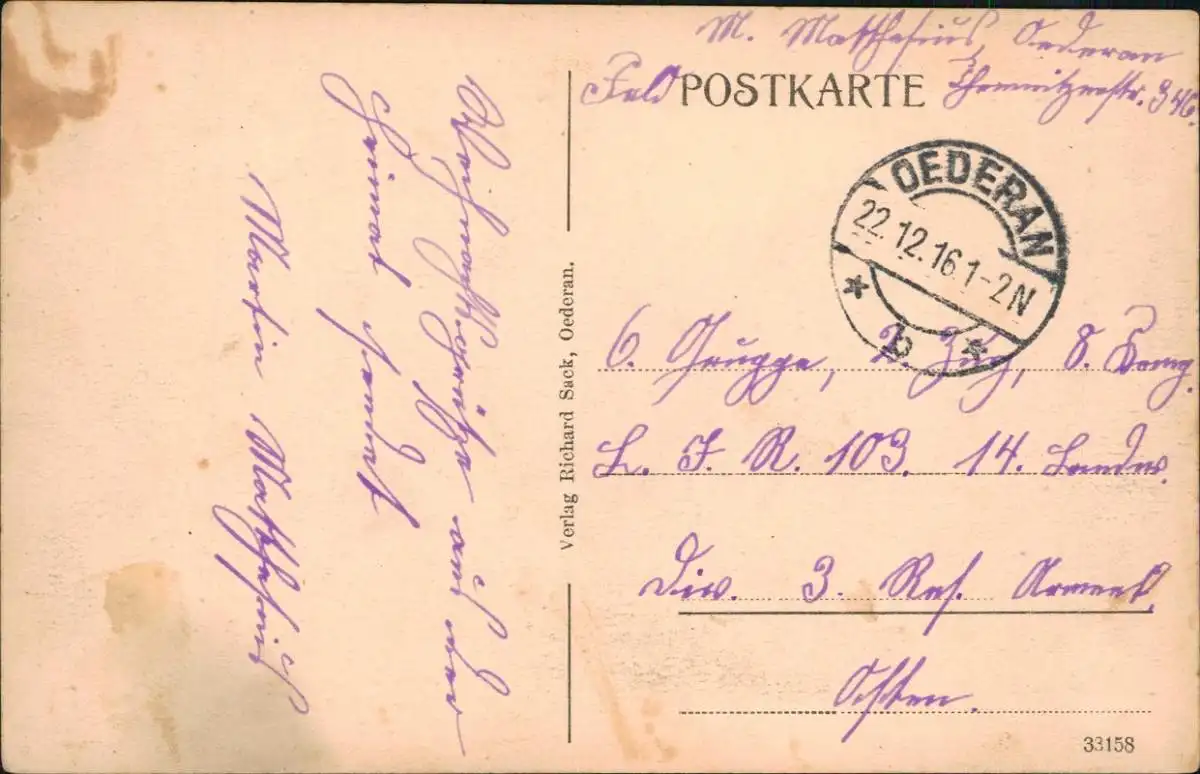 M. Matthesius, Oederan
Feld POSTKARTE Chemnitzerstr. 346.
OEDERAN
22.12.16.1-2N
* b *
6. Gruppe, 2. Zug, 8. Komp.
L. I. R. 103. 14. Landw.
Div. 3. Res. Armeek.
Osten.
33158
Verlag Richard Sack, Oederan.
Weihnachtsgrüße aus der
Heimat sendet
Martin Matthesius